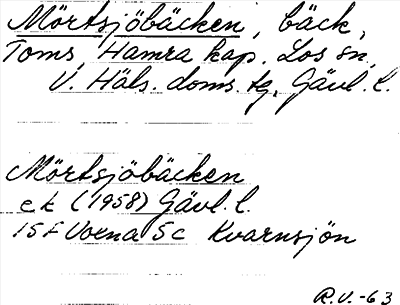 Mörtsjöbäcken, bäck,
Toms, Hamra kap. Los sn,
V. Häls. doms. tg, Gävl. l.
Mörtsjöbäcken
ek (1958) Gävl. l.
15 F Voxna 5c Kvarnsjön
R.V. -63